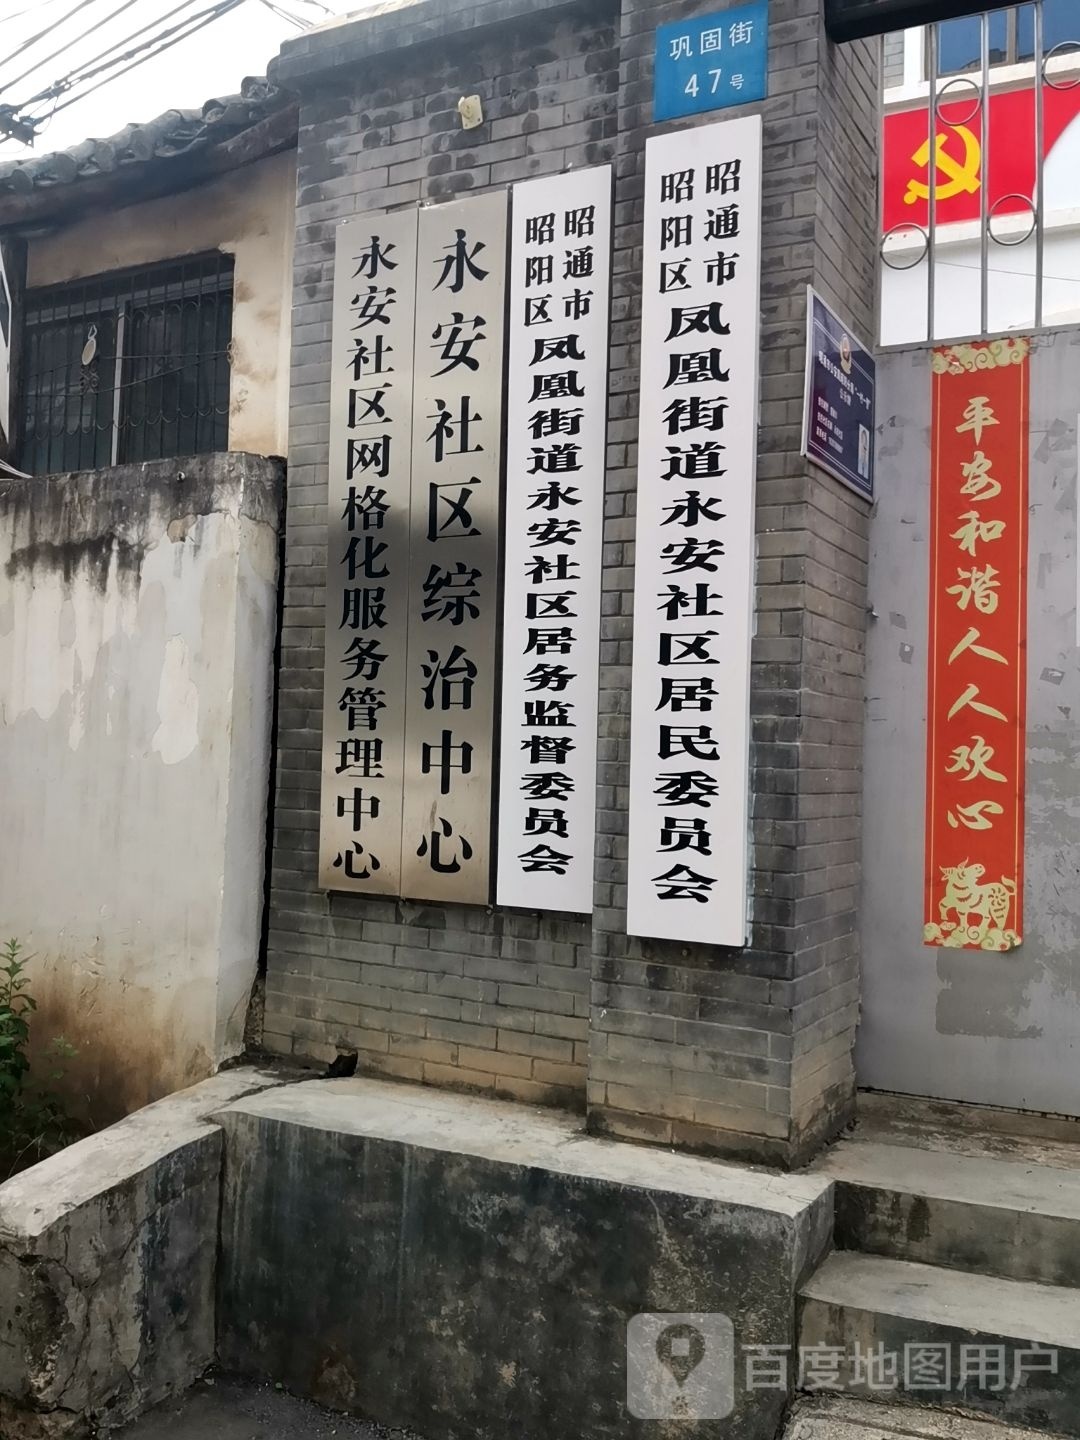 巩固街
47号
昭通市
昭阳区
凤凰街道永安社区居民委员会
昭通市
昭阳区
凤凰街道永安社区居务监督委员会
永安社区综治中心
永安社区网格化服务管理中心
平安和谐人人欢心
百度地图用户